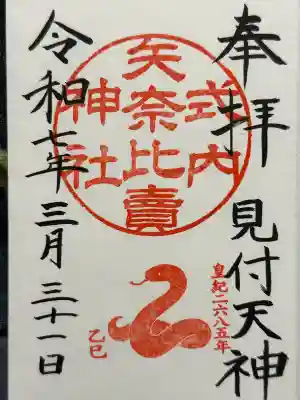 奉拝 見付天神
皇紀二六八五年
式内
矢奈比賣
神社
乙巳
令和七年 三月 三十一日